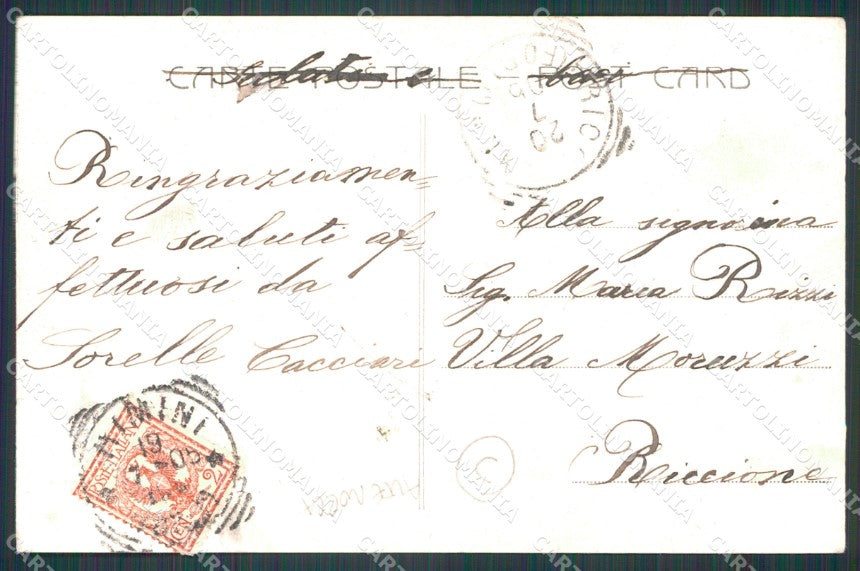 CARTE POSTALE – POST CARD
Ringraziamen=
ti e saluti af-
fettuosi da
Sorelle Cacciari
Alla signorina
Sig. Maria Rizzi
Villa Moruzzi
Riccione
RIMINI
19
POSTE ITALIANE
2
20
CARTOLINOMANIA